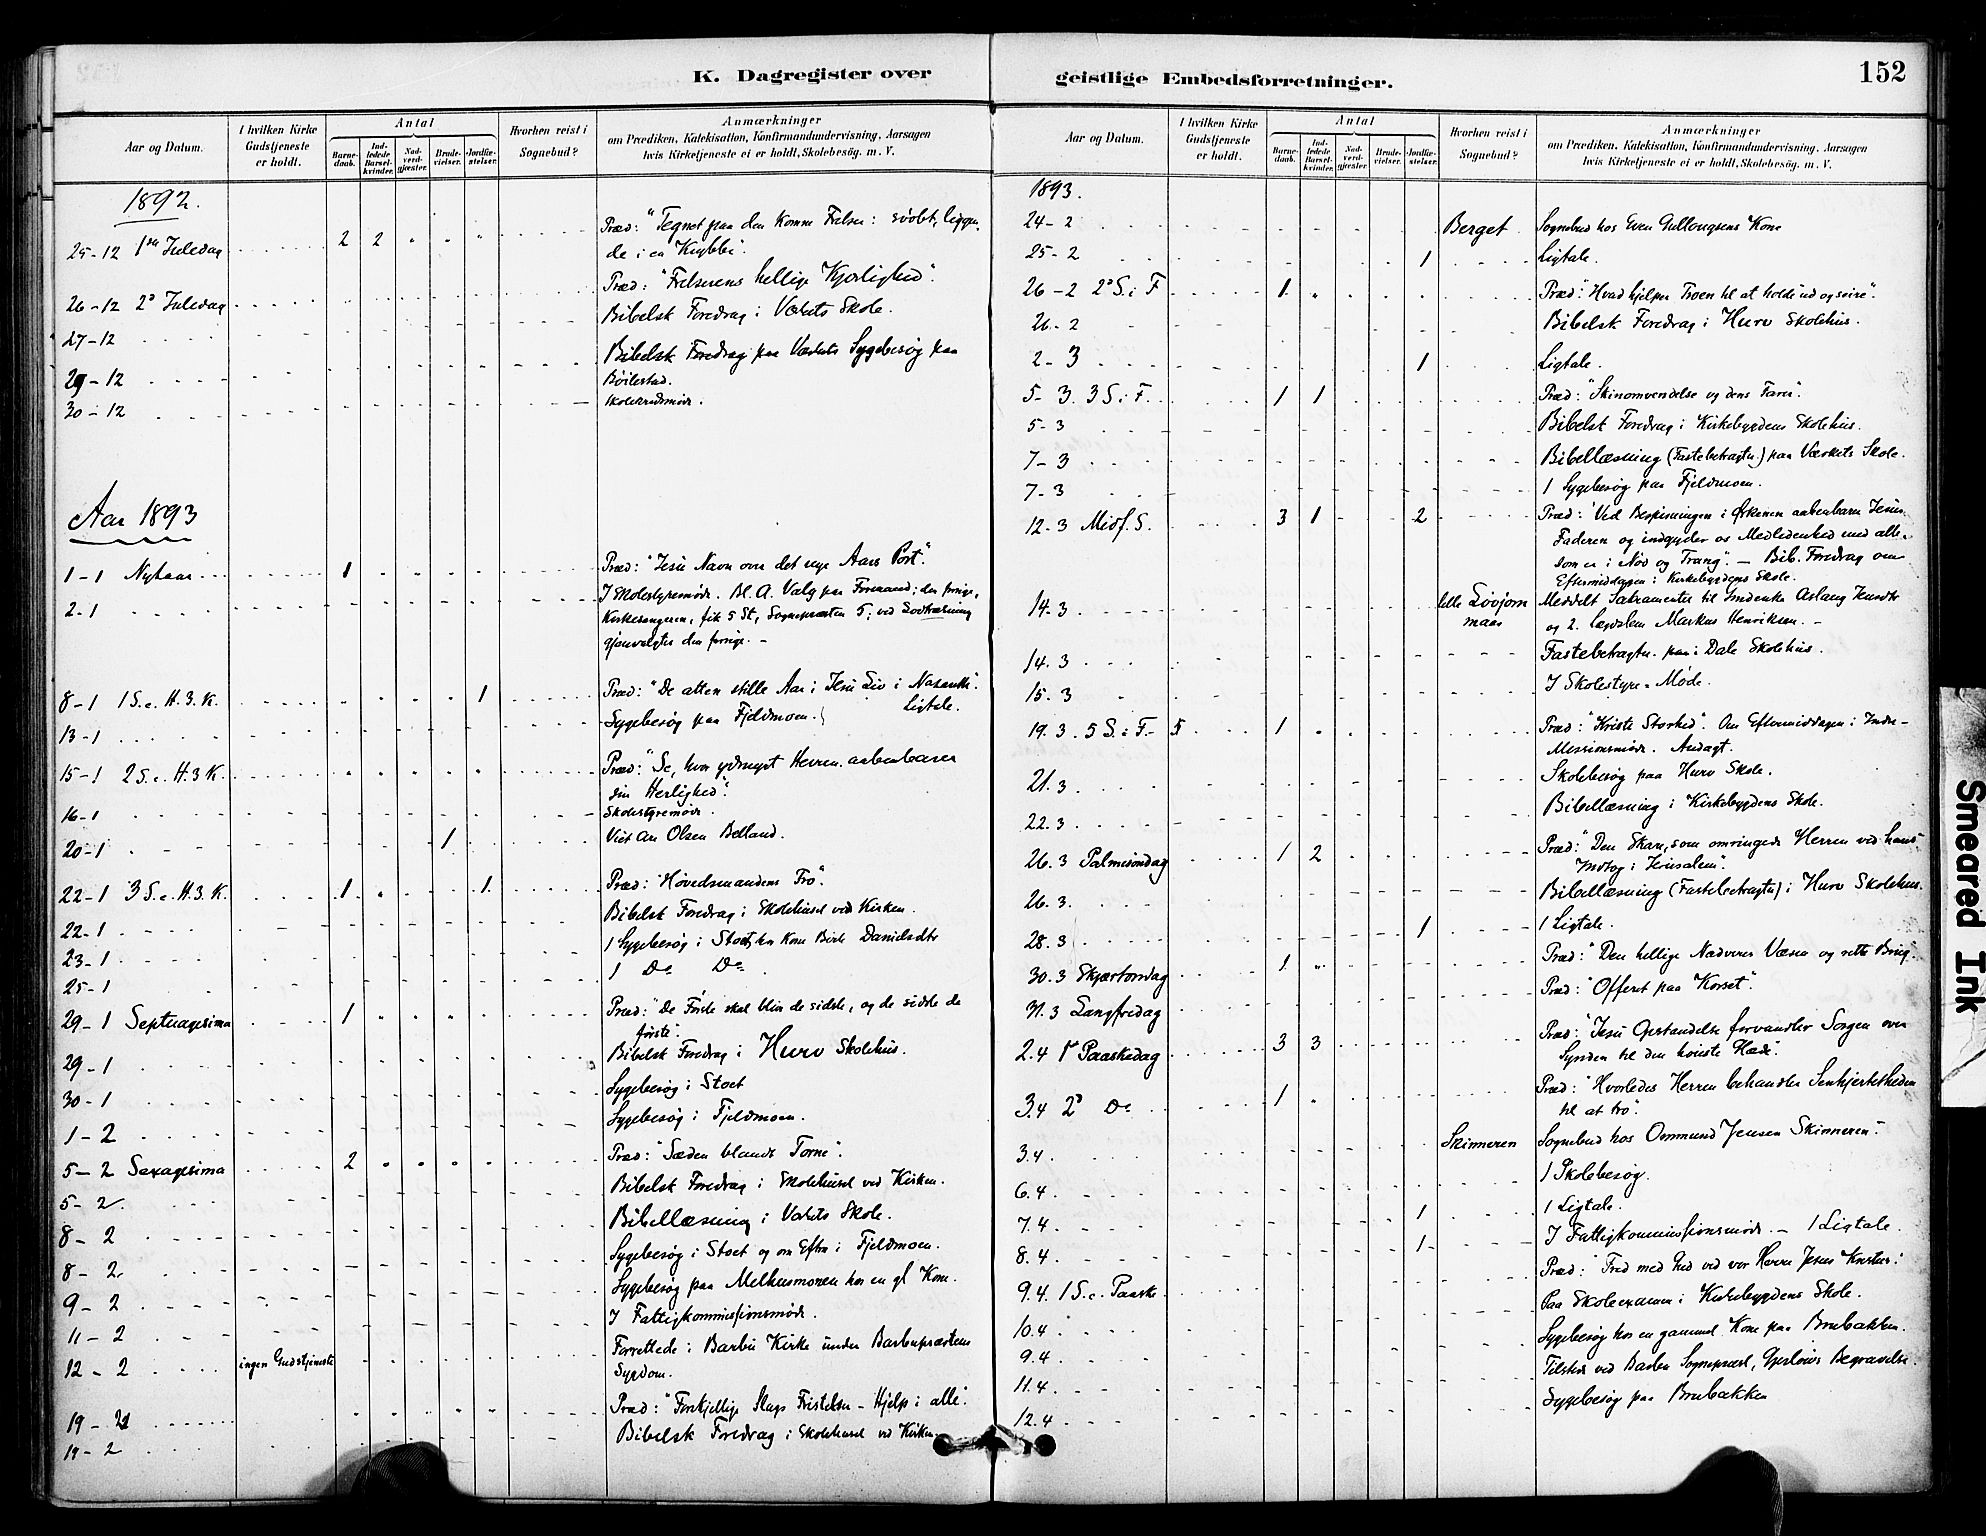 K. Dagregister over
Aar og Datum.
I hvilken Kirke Gudstjeneste er holdt.
Antal
Barne-daab.
Ind-ledede Barsel-kvinder.
Nad-verd-gjæster.
Brude-vielser.
Jordfæ-stelser.
Hvorhen reist i Sognebud?
Anmærkninger
om Prædiken, Katekisation, Konfirmandundervisning, Aarsagen
hvis Kirketjeneste ei er holdt, Skolebesøg. m. V.
1892.
25-12 1ste Juledag 2 2 Præd: "Tegnet paa den komne Frelser: svøbt, liggen-
de i en Krybbe".
26-12 2den Juledag Præd: "Frelserens hellige Kjærlighed".
27-12 Bibelsk Foredrag i Værkets Skole.
29-12 Bibelsk Foredrag paa Værket. Sygebesøg paa
Bøilestad.
30-12 Skoleraadsmøde.
Aar 1893
1-1 Nytaar 1 Præd: "Jesu Navn over det nye Aars Port".
2-1 I Skolestyremøde. Bl. A. Valg paa Formand; den forrige,
Kirkesangeren, fik 5 St, Sognepræsten 5; ved Lodtrækning
gjenvalgtes den forrige. -
8-1 1 S. e. H. 3. K. 1 Præd: "De atten stille Aar i Jesu Liv i Nazareth".
Ligtale.
13-1 Sygebesøg paa Fjeldmoen.
15-1 2 S. e. H. 3 K. Præd: "Se, hvor ydmygt Herren aabenbarer
sin Herlighed".
16-1 Skolestyremøde.
20-1 1 Viet Olsen Belland.
22-1 3 S. e. H. 3. K. 1 1 Præd: "Høvedsmandens Tro".
22-1 Bibelsk Foredrag i Skolehuset ved Kirken.
23-1 1 Sygebesøg i Stoet hos Kone Danielsdtr
25-1 1 Do Do
29-1 Septuagesima 1 Præd: "De Første skal blive de sidste, og de sidste de
første".
29-1 Bibelsk Foredrag i Hurv Skolehus.
30-1 Sygebesøg i Stoet
1-2 Sygebesøg i Fjeldmoen.
5-2 Sexagesima 2 Præd: "Sæden blandt Torne".
5-2 Bibelsk Foredrag i Skolehuset ved Kirken.
8-2 Bibellæsning i Værkets Skole.
8-2 Sygebesøg i Stoet og om Eftm i Fjeldmoen.
9-2 Sygebesøg paa Melhusmoen hos en gl Kone.
11-2 I Fattigkommissionsmøde.
12-2 ingen Gudstjeneste Forrettede i Barbu Kirke under Barbupræstens
Sygdom.
19-2 Præd: "Forskjellige Slags Fristelser - Hjælp i alle".
19-2 Bibelsk Foredrag i Skolehuset ved Kirken
geistlige Embedsforretninger.
152
Aar og Datum.
I hvilken Kirke Gudstjeneste er holdt.
Antal
Barne-daab.
Ind-ledede Barsel-kvinder.
Nad-verd-gjæster.
Brude-vielser.
Jordfæ-stelser.
Hvorhen reist i Sognebud?
Anmærkninger
om Prædiken, Katekisation, Konfirmandundervisning, Aarsagen
hvis Kirketjeneste ei er holdt, Skolebesøg. m. V.
1893.
24-2 Berget Sognebud hos Even Kone
25-2 1 Ligtale.
26-2 2den S. i F 1 Præd: "Hvad hjælper Troen til at holde ud og seire".
26-2 Bibelsk Foredrag i Hurv Skolehus.
2-3 1 Ligtale.
5-3. 3 S. i F. 1 1 Præd: "Skinomvendelse og dens Farer".
5-3 Bibelsk Foredrag i Kirkebygdens Skolehus.
7-3 Bibellæsning (Fastebetragtn.) paa Værkets Skole.
7-3 1 Sygebesøg paa Fjeldmoen.
12-3 Midf. S. 3 1 2 Præd: "Ved Bespisningen i Ørkenen aabenbarer Jesus
Faderen og indgyder os Medlidenhed med alle,
som er i Nød og Trang". - Bib. Foredrag om
Eftermiddagen i Kirkebygdens Skole.
14.3 lille Løvjom Meddelt Sakramentet til Aslaug
maas og 2. Markus Henriksen. -
14.3 Fastebetragtn. paa i Dale Skolehus.
15.3 I Skolestyre-Møde.
19.3. 5 S. i F. 5 1 Præd: "Kristi Storhed". Om Eftermiddagen i Indre-
Missionsmøde. Andagt.
21.3 Skolebesøg paa Hurv Skole.
22.3 Bibellæsning i Kirkebygdens Skole.
26.3 Palmesøndag 1 2 Præd: "Den Skare, som omringede Herren ved hans
Indtog i Jerusalem".
26.3. Bibellæsning (Fastebetragtn) i Hurv Skolehus.
28.3 1 1 Ligtale.
30.3 Skjærtorsdag 1 Præd: "Den hellige Nadveres Væsen og rette Brug".
31.3 Langfredag Præd: "Offeret paa Korset".
2.4 1ste Paaskedag 3 3 Præd: "Jesu Opstandelse forvandler Sorgen over
Synden til den høieste Glæde".
3.4 2den Do 1 Præd: "Hvorledes Herren behandler Senhjertetheden
til at tro".
3.4 Skinneren Sognebud hos Ommund Jensen Skinneren.
6.4 1 Skolebesøg.
7.4 1 1 Ligtale.
8.4 1 I Fattigkommissionsmøde. - 1 Ligtale.
9.4. 1 S. e. Paaske Præd: Fred med Gud ved vor Herre Jesus Kristus!
10.4 Paa Skoleexamen i Kirkebygdens Skole.
9.4 Sygebesøg hos en gammel Kone paa Brubakken.
11.4 Tilstede ved Barbu Sognepræst, Begravelse.
12.4 Sygebesøg paa Brubakken
Smeared Ink